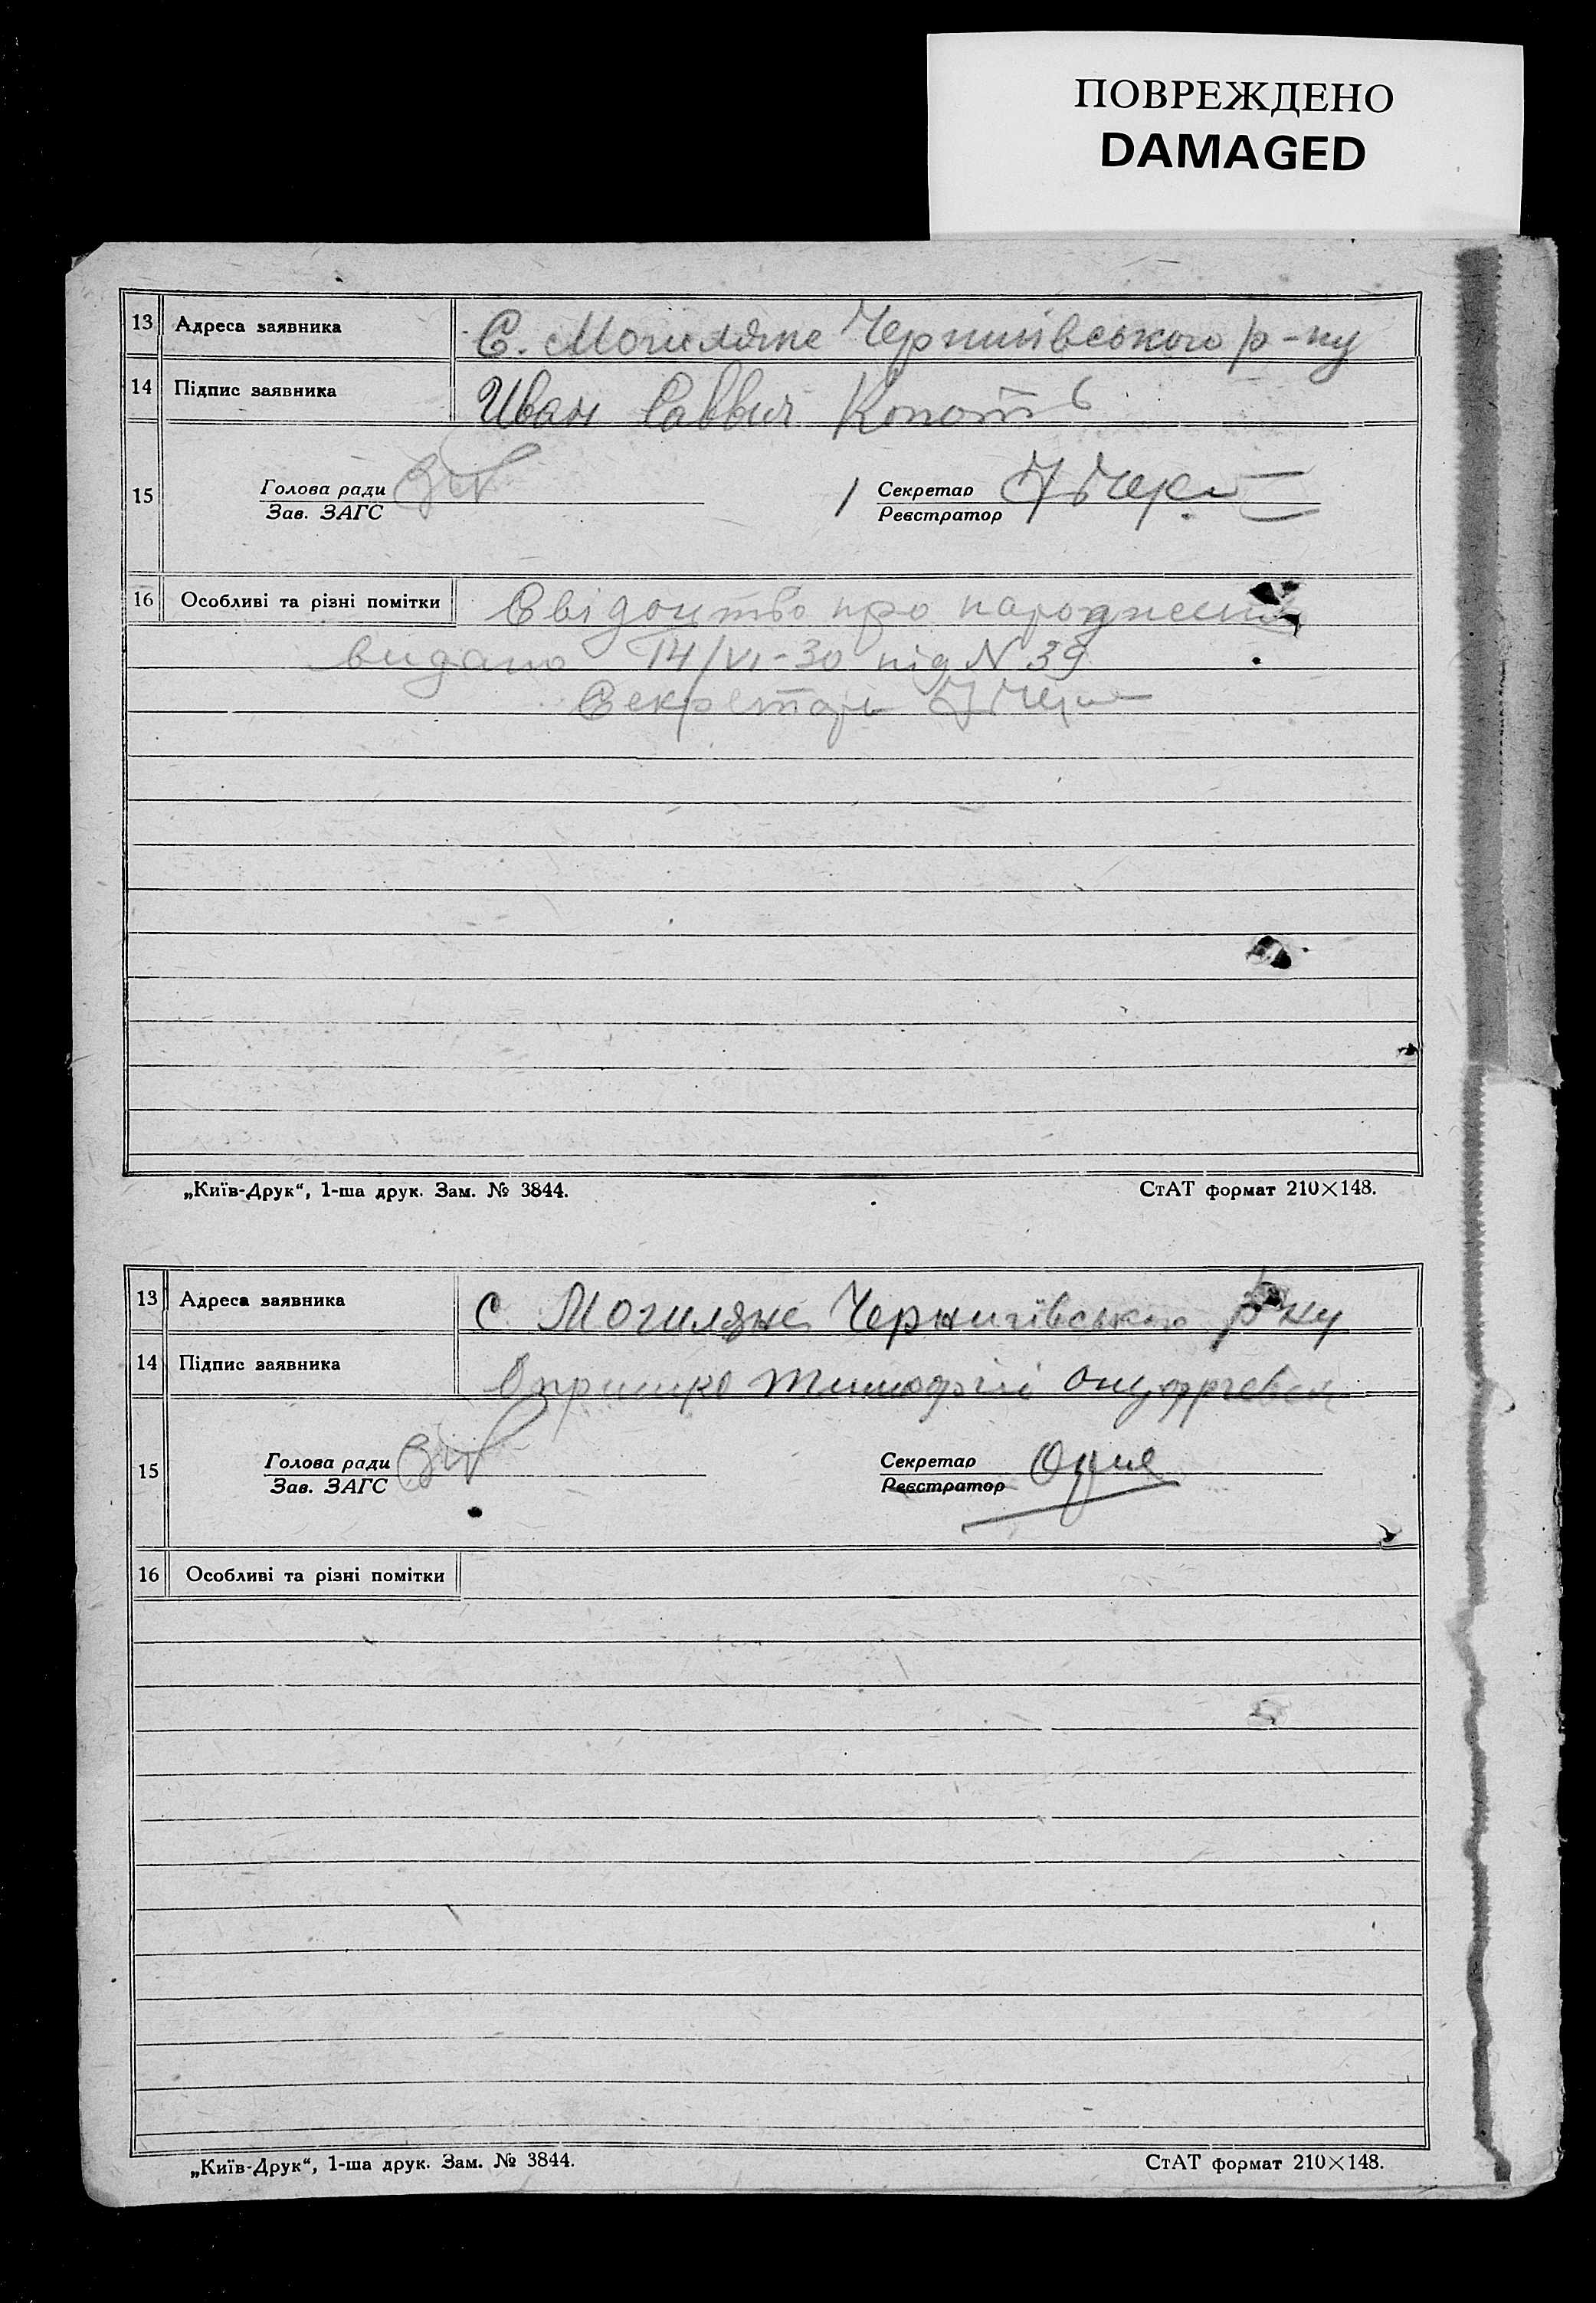 ПОВРЕЖДЕНО
DAMAGED
13 Адреса заявника С. Могиляне Чернигівського р-ну
14 Підпис заявника Иван Саввич Копоть
15 Голова ради Секретар
Зав. ЗАГС Реєстратор
16 Особливі та різні помітки Свідоцтво про народження
видано 14/VI-30 під N 39
Секретарь
„Київ-Друк“, 1-ша друк. Зам. № 3844. СтАТ формат 210×148.
13 Адреса заявника С Могиляне Чернигівського р-ну
14 Підпис заявника Опришко Тимофій
15 Голова ради Секретар
Зав. ЗАГС Реєстратор
16 Особливі та різні помітки
„Київ-Друк“, 1-ша друк. Зам. № 3844. СтАТ формат 210×148.